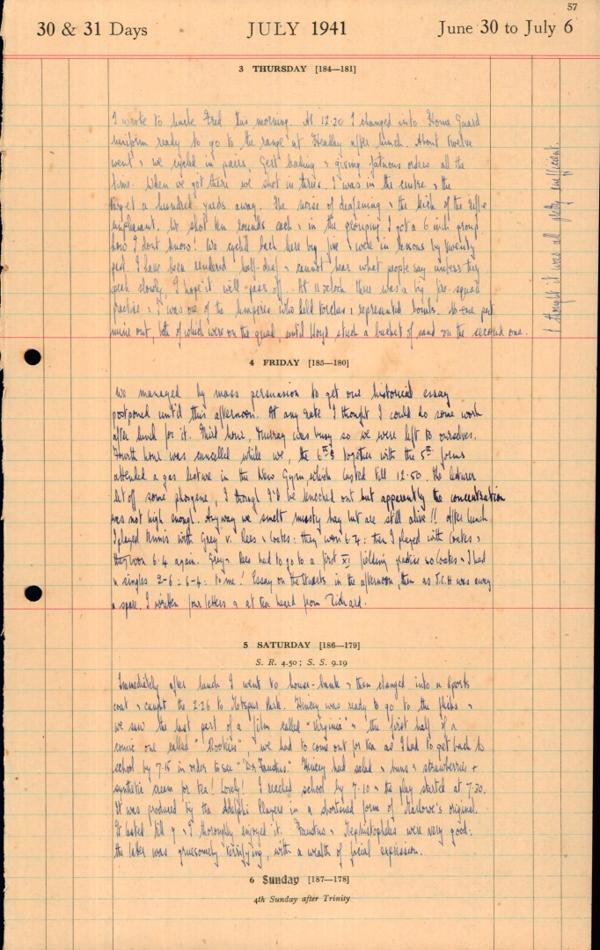 57
30 & 31 Days JULY 1941 June 30 to July 6
3 THURSDAY [184—181]
I wrote to Uncle Fred this morning. At 12.20 I changed into Home Guard
uniform ready to go to the range at Headley after lunch. About twelve
went & we cycled in pairs, Gert & giving fatuous orders all the
time. When we got there we shot in threes. I was in the centre & the
target a hundred yards away. The noise is deafening & the kick of the rifle
unpleasant. We shot ten rounds each & in the grouping I got a 6 inch group
how I dont know! We cycled back here by five & were in lessons by twenty
past. I have been rendered half-deaf & cannot hear what people say unless they
speak slowly. I hope it will pass off. At 11 o'clock there was a big fire-squad
practice & I was one of the umpires who held torches & represented bombs. No-one put
mine out, both of which were on the quad, until Lloyd stuck a bucket of sand on the second one.
I thought it was all pretty inefficient.
4 FRIDAY [185—180]
We managed by mass persuasion to get our historical essay
postponed until this afternoon. At any rate I thought I could do some work
after lunch for it. Third hour, Murray was busy so we were left to ourselves.
Fourth hour was cancelled while we, the 6ths together with the 5th forms
attended a gas lecture in the New Gym which lasted till 12.50. The lecturer
let off some phosgene, I thought I'd be knocked out but apparently the concentration
was not high enough. Anyway we smelt musty hay but are still alive!! After lunch
I played tennis with Grey v. Rees & Coates: they won 6-4: then I played with Coates &
they won 6-4 again. Grey & Rees had to go to a first XI fielding practice so Coates & I had
a singles 2-6 : 6-4: to me! Essay on the in the afternoon, then as J.C.H was away
a spare. I written four letters & at tea heard from Richard.
5 SATURDAY [186—179]
S. R. 4.50; S. S. 9.19
Immediately after lunch I went to house-bank & then changed into a sports
coat & caught the 2.26 to Park. was ready to go to the flicks &
we saw the last part of a film called "Virginia" & the first half of a
comic one called "Rookies", we had to come out for tea as I had to get back to
school by 7.15 in order to see "Dr. Faustus." had salad & buns & strawberries &
synthetic cream for tea! Lovely! I reached school by 7.10 & the play started at 7.30.
It was produced by the Adelphi Players in a shortened form of Marlowe's original.
It lasted till 9 & I thoroughly enjoyed it. Faustus & Mephistopheles were very good:
the latter was gruesomely terrifying, with a wealth of facial expression.
6 Sunday [187—178]
4th Sunday after Trinity